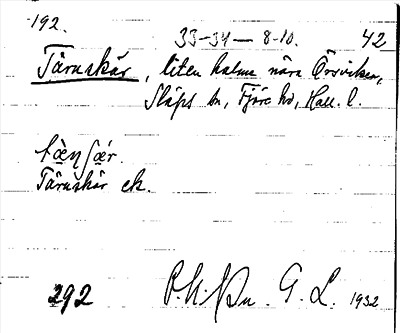 192.
33-34-8-10. 42
Tärnskär, liten holme nära Örsviken,
Släps sn, Fjäre hd, Hall. l.
Tärnskär ek.
292 G. L. 1932